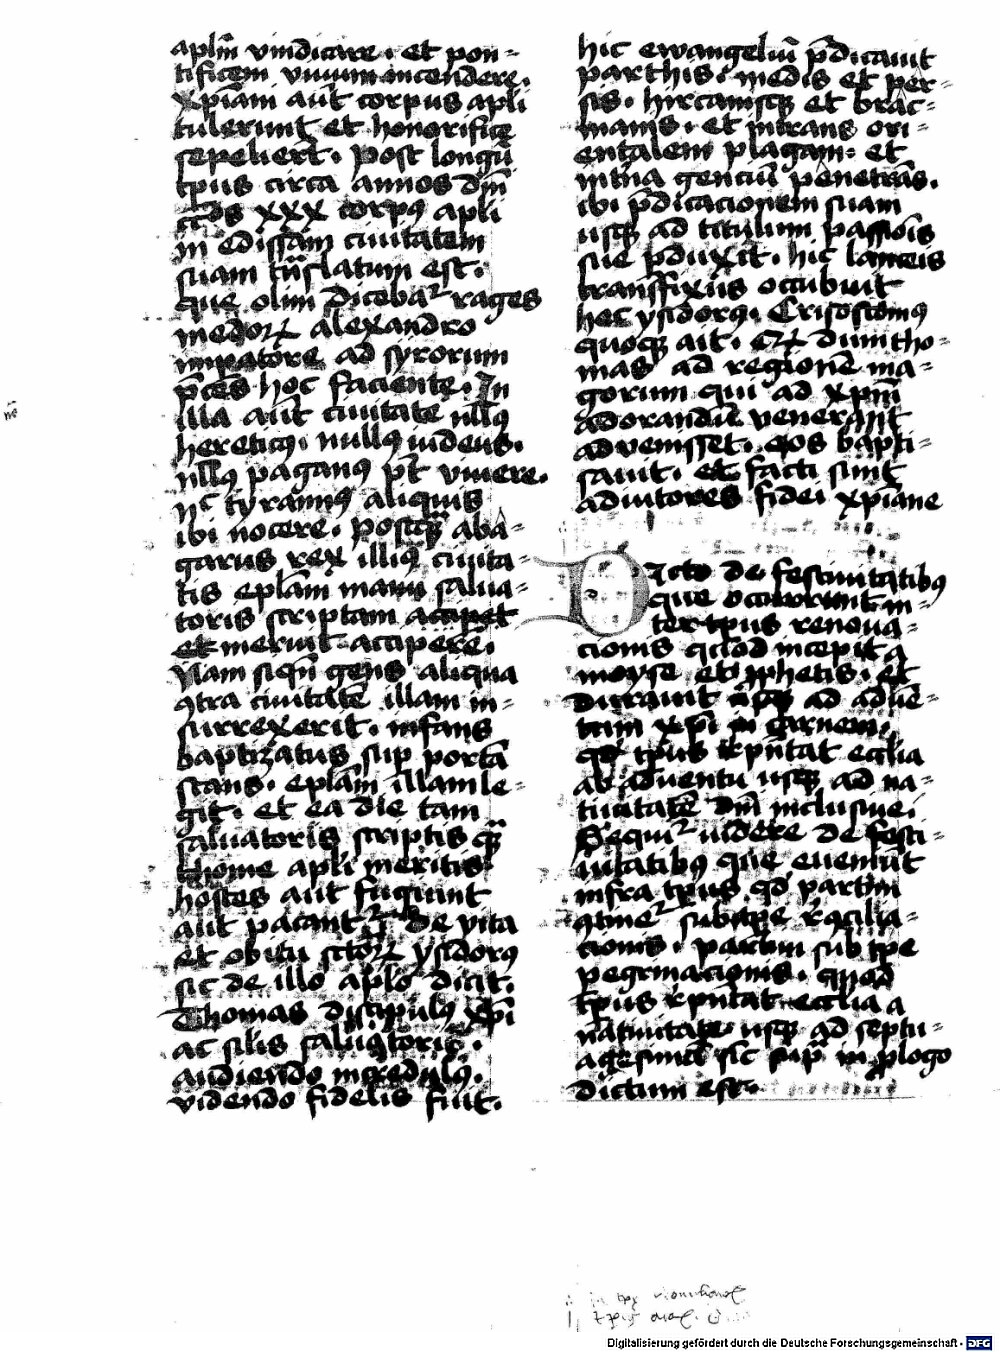 aplm̄ vindicare · et pon=
tificem viuum incendere ·
xp̄iani aūt corpus apl̄i
tulerunt et honorifice
sepelierūt · post longū
tp̄us circa annos dn̄i
ccos xxx corpꝰ apl̄i
in edissam ciuitatem
suam tn̄slatum est ·
que olim dicebat᷑ rages
medoꝝ alexandro
impatore ad syrorum
p̄ces hoc faciente · In
illa aūt ciuitate nllꝰ
hereticꝰ · nullꝰ iudeus ·
nllꝰ paganꝰ pt̄ viuere ·
nc̄ tyrannꝰ aliquis
ibi nocere · postqᷓ aba=
garus rex illiꝰ ciuita=
tis epl̄am manu salua=
toris scriptam accipet
et meruit accipere ·
Nam siqn̄ gens aliqua
ꝯtra ciuitatē illam in=
surrexerit · infans
baptizatus sup portā
stans · epl̄am illam le=
git · et ea die tam
saluatoris scriptis qᷓ
thome apl̄i meritis
hostes aūt fugiunt
aut pacant᷑ · De vita
et obitu sctoꝝ ysidorꝰ
sic de illo apl̄o dicit ·
Thomas discipulꝰ xp̄i
ac sil̄is saluatoris ·
audiendo incredulꝰ ·
videndo fidelis fuit ·
hic ewangeliū p̄dicauit
parthis · medis et per=
sis · hircanisqꝫ et brac=
manis · et intrans ori=
entalem plagam · et
intīa genciū penetrās ·
ibi p̄dicacionem suam
usqꝫ ad titulum passiōis
sue ꝑduxit · hic lanceis
transfixus occubuit
hec ysidorꝰ · Crisostomꝰ
quoqꝫ ait · Cꝝ dum tho=
mas ad regionē ma=
gorum qui ad xp̄m
adorandū venerant
aduenisset · eos bapti=
sauit · et facti sunt
adiutores fidei xp̄iane
Dicto de festiuitatibꝰ
que occurrunt in=
ter tp̄us renoua=
cionis quod incepit a
moyse et ꝓphetis · et
durauit usqꝫ ad aduē=
tum xp̄i in carnem ·
qd̄ tp̄us rp̄ntat ecclia
ab aduentu usqꝫ ad na=
tiuitatē dn̄i inclusiue ·
Sequit᷑ uidere de festi=
uitatibꝰ que eueniūt
infra tp̄us qd̄ partim
ꝯtinet᷑ sub tpe r̄ꝯcilia=
cionis · partim sub tpe
pegrinacionis · quod
tp̄us rp̄ntat ecclia a
natiuitate usqꝫ ad septu=
agesimā sic supᷓ in ꝓlogo
dictum est ·
Digitalisierung gefördert durch die Deutsche Forschungsgemeinschaft - DFG